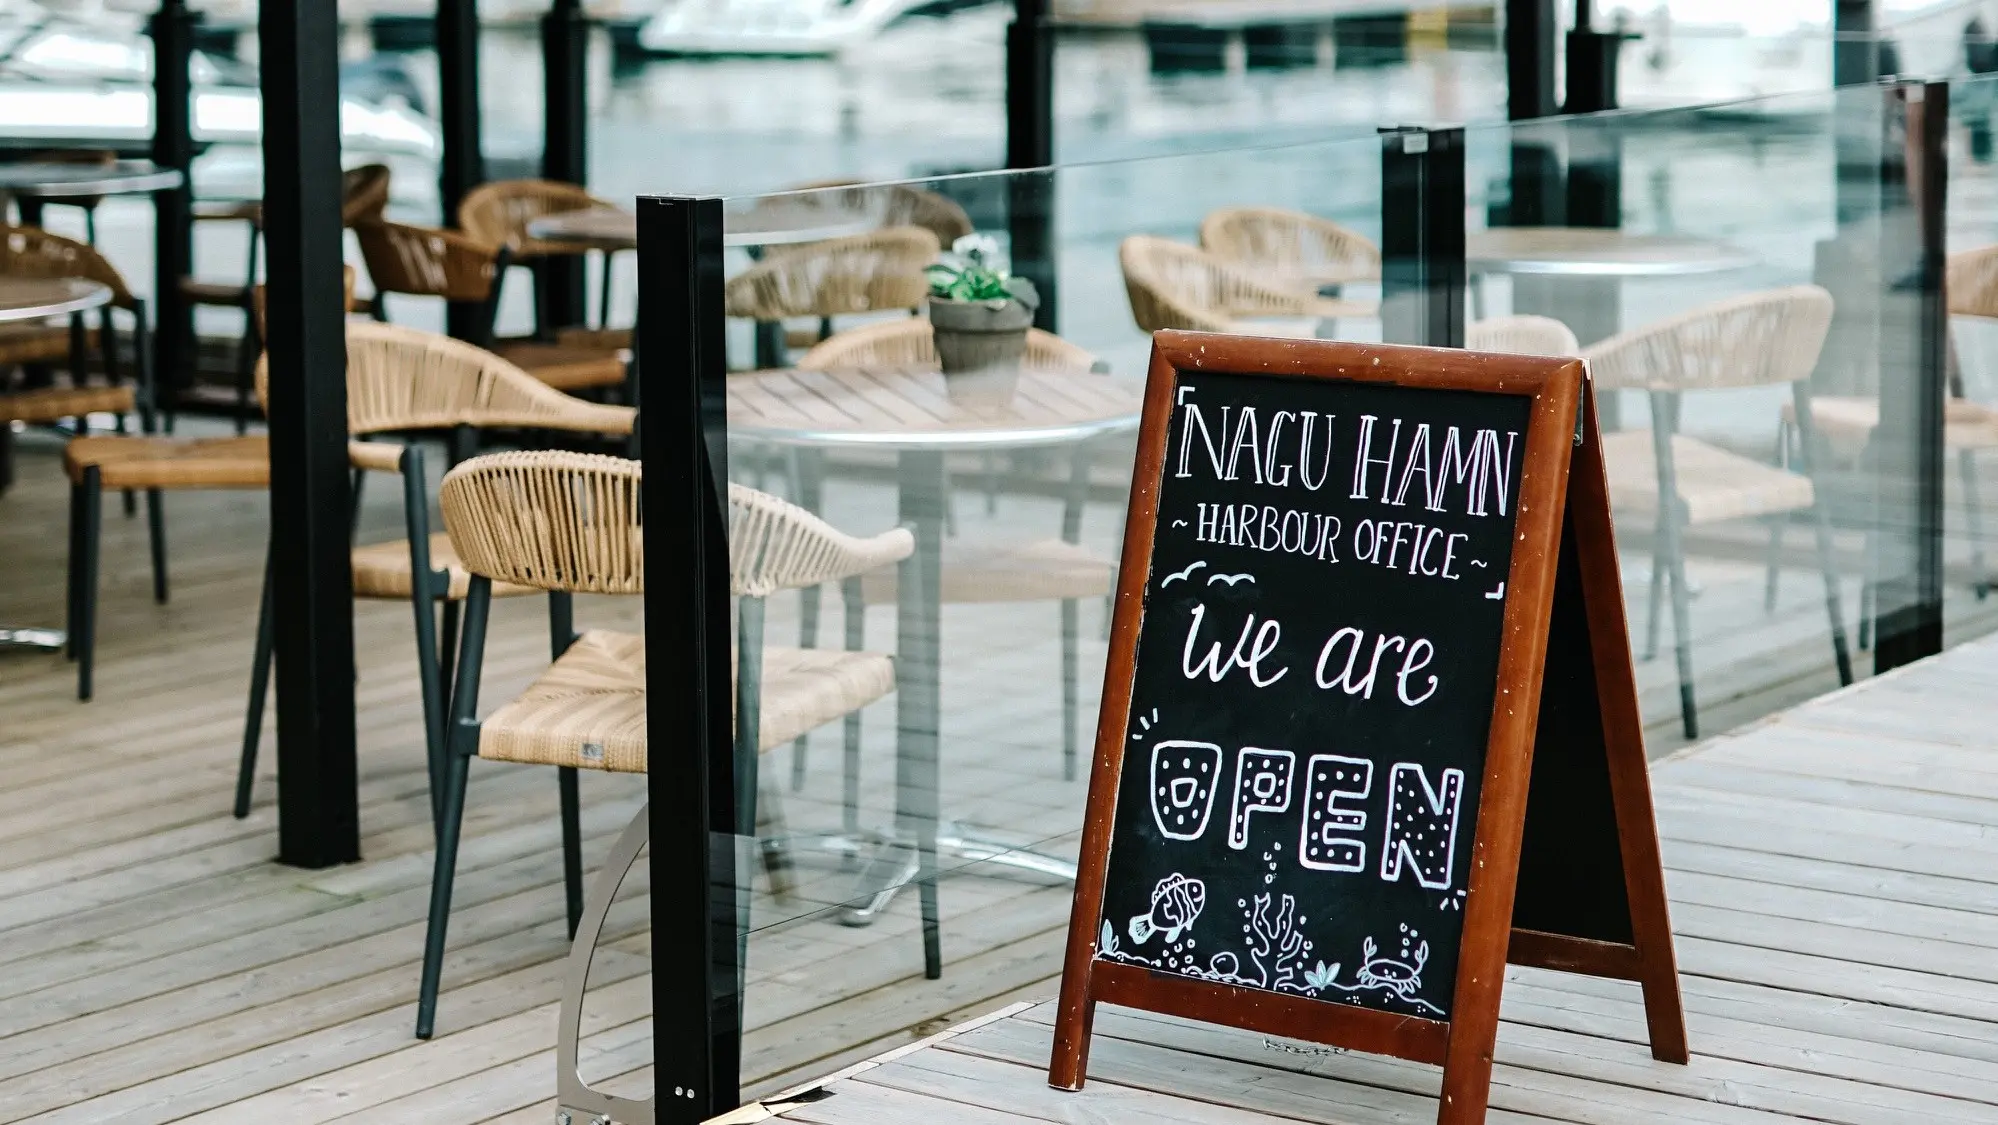 NAGU HAMN
~ HARBOUR OFFICE ~
we are
OPEN